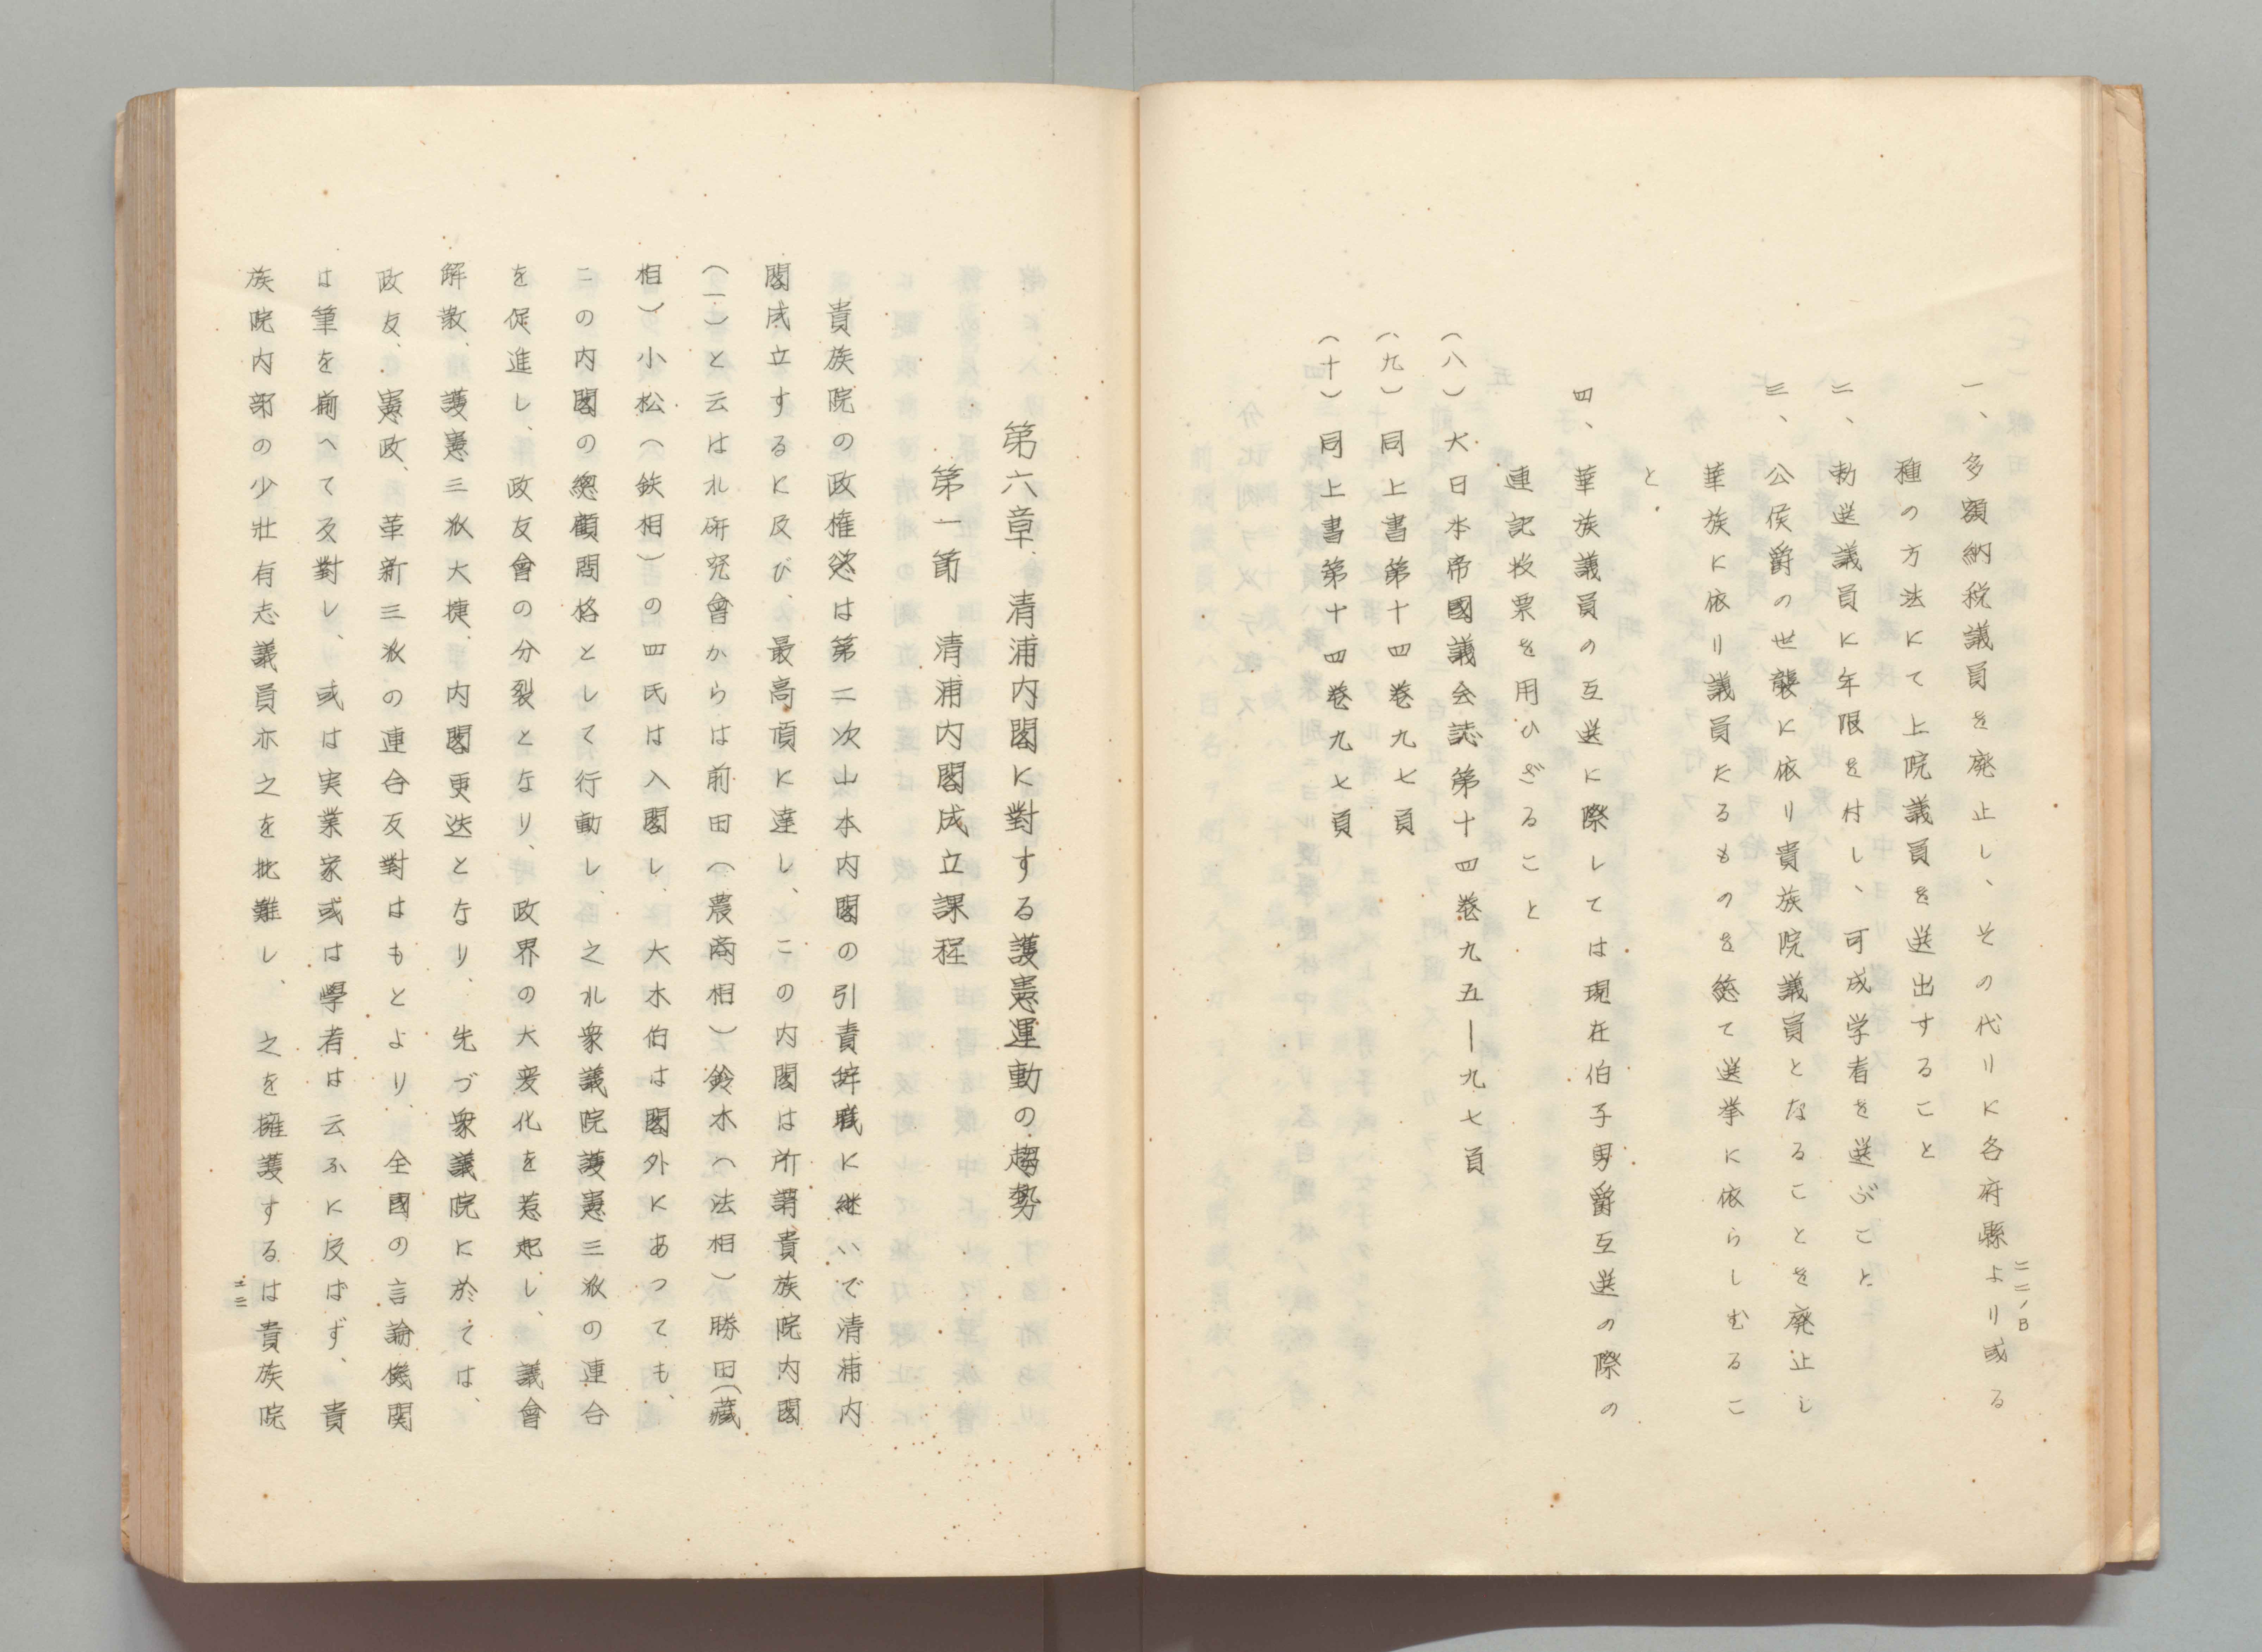 一、多額納税議員を廃止し、その代りに各府縣より或る
種の方法にて上院議員を選出すること
二、勅選議員に年限を付し、可成学者を選ぶこと
三、公侯爵の世襲に依り貴族院議員となることを廃止し
華族に依り議員たるものを総て選挙に依らしむるこ
と
四、華族議員の互選に際しては現在伯子男爵互選の際の
連記投票を用ひざること
(八)大日本帝國議会誌第十四巻九五—九七頁
(九)同上書第十四巻九七頁
(十)同上書第十四巻九七頁
第六章 清浦内閣に對する護憲運動の趨勢
第一節 清浦内閣成立課程
貴族院の政権慾は第二次山本内閣の引責辞職に継いで清浦内
閣成立するに及び、最高頂に達し、この内閣は所謂貴族院内閣
(一)と云はれ研究會からは前田(農商相)鈴木(法相)勝田(藏
相)小松(鉄相)の四氏は入閣し、大木伯は閣外にあつても、
この内閣の總顧問格として行動し、之れ衆議院護憲三派の連合
を促進し、政友會の分裂となり、政界の大変化を惹起し、議會
解散、護憲三派大捷、内閣更迭となり、先づ衆議院に於ては、
政友、憲政、革新三派の連合反對はもとより、全國の言論機関
は筆を揃へて反對し、或は実業家或は學者は云ふに及ばず、貴
族院内部の少壮有志議員亦之を批難し、之を擁護するは貴族院